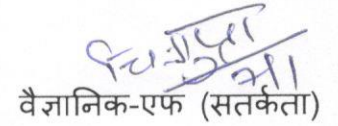 वैज्ञानिक-एफ (सतर्कता)